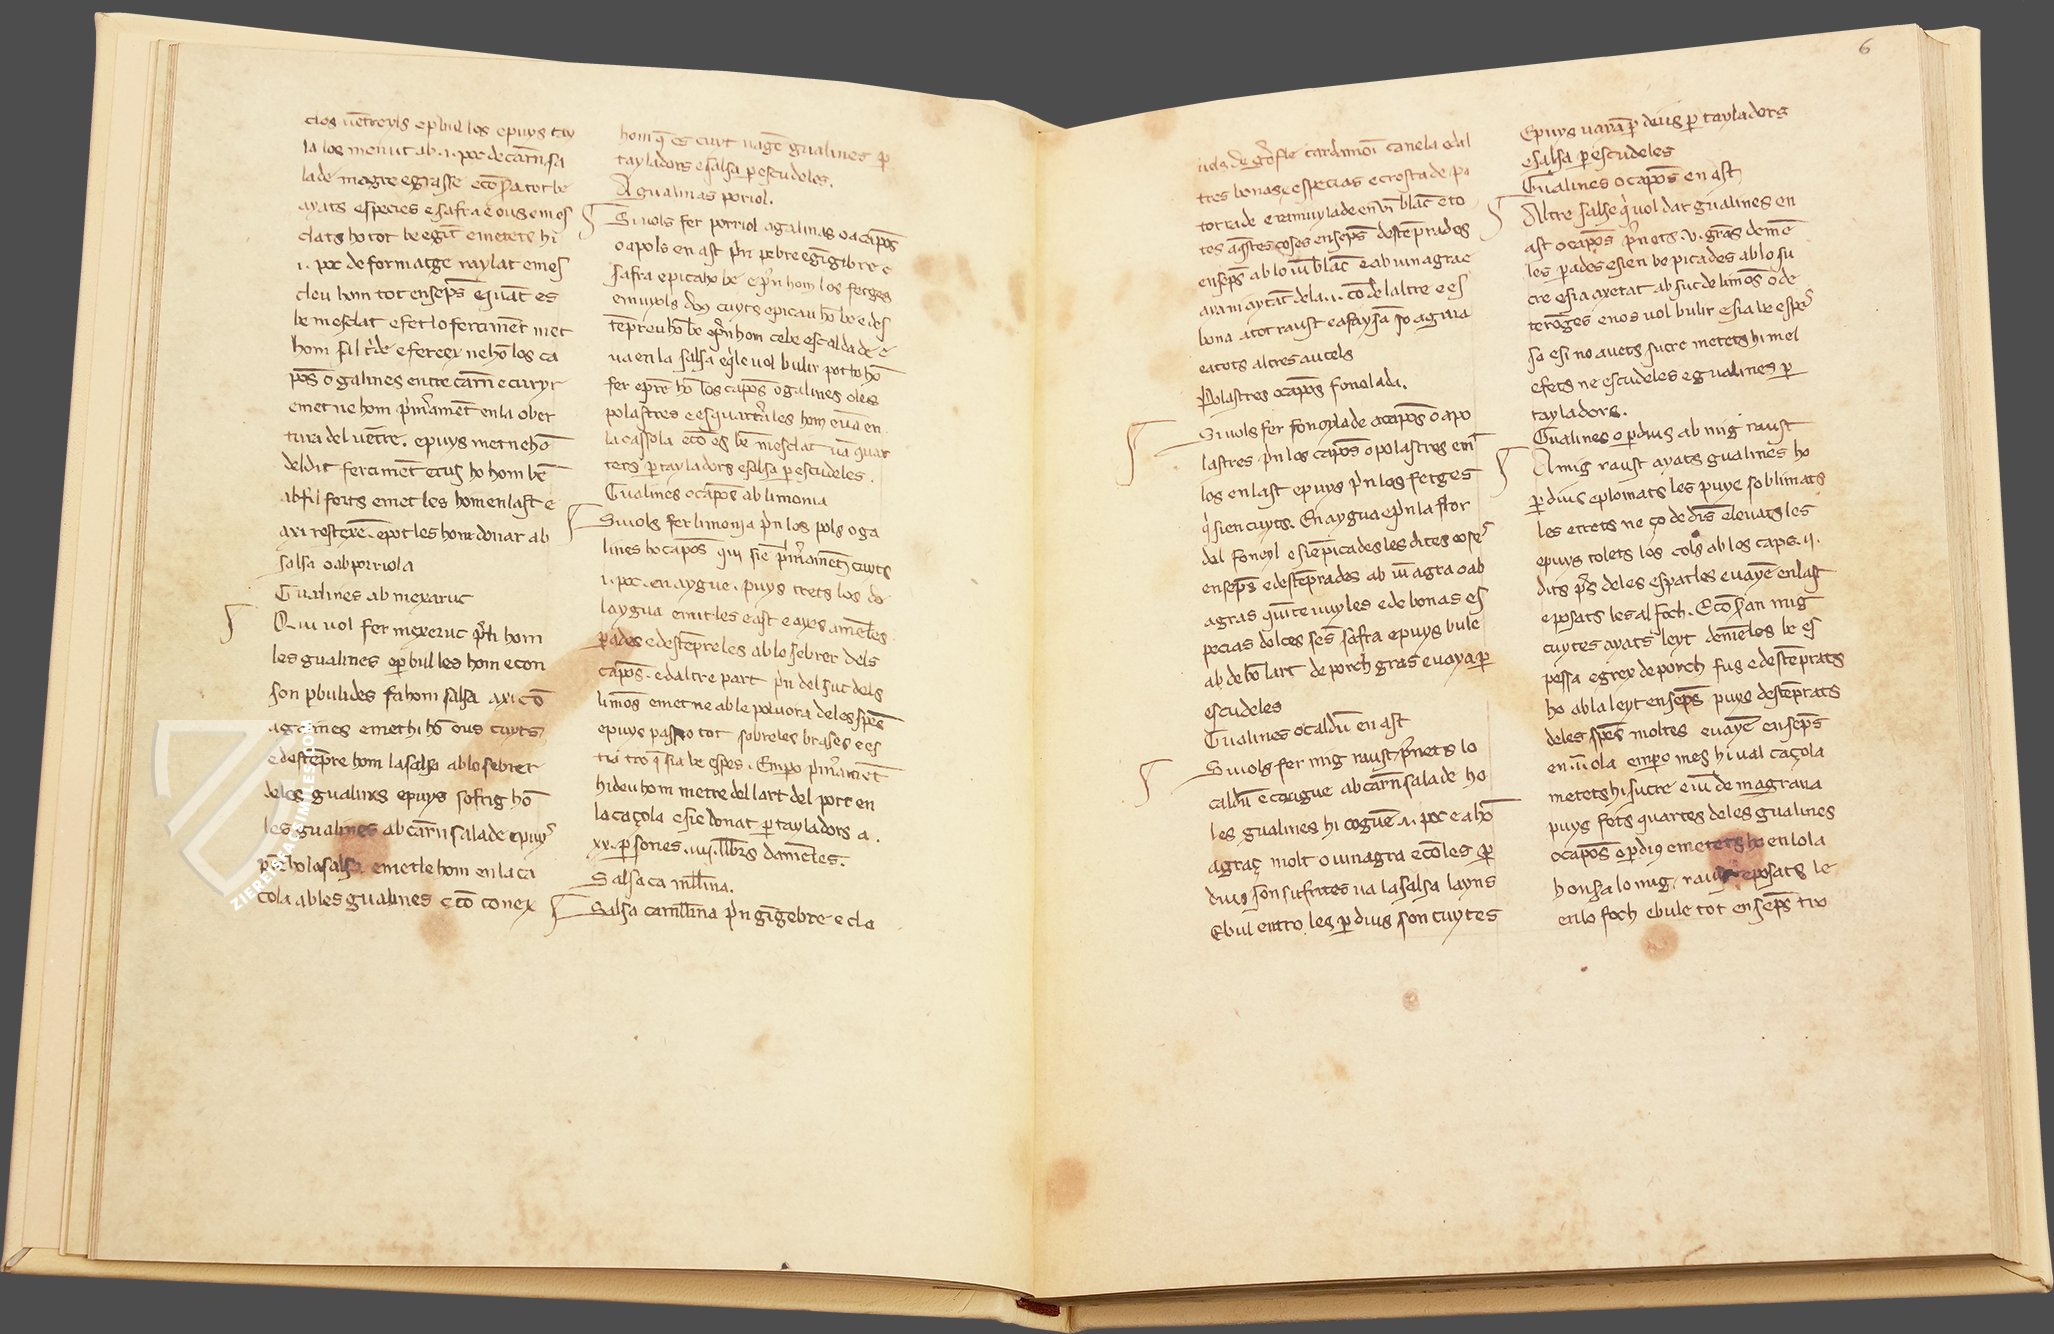 la los menut ab .i. poc de carn sa
lada magre e grasse
ayats especies e safra e ous e mes
clats ho tot be e gint e metets hi
.i. poc de formatge raylat e mes
cleu hom tot ensēps e quāt es
be mesclat e fet lo farcimēt met
hom e ne hō los ca
pōs o galines entre carn e cuyr
e met ne hom en la ober
tura del uētre. e puys met ne hō
del dit farcimēt e cus ho hom bē
ab fil fort e met les hom en last e
axi e pot les hom donar ab
salsa o ab porriola
Gualines ab mexaruc
Qui uol fer mexeruc hom
les gualines e ꝑbul les hom e con
son ꝑbulides fa hom salsa axi cō
a galines e met hi hō ous cuyts
e destēpre hom la salsa ab lo sebrer
de les gualines e puys sofrig hō
les gualines ab carn salade e puys
ho la salsa e met le hom en la ca
cola ab les gualines e cō conex
hom q̄ es cuyt uagē gualines ꝑ
tayladors e salsa ꝑ escudeles.
A gualinas poriol.
Si uols fer porriol a galinas o a capōs
o a pols en ast pebre e gīgibre e
safra e pica ho be e hom los fetges
e mugols dou cuyts e picau hō be e des
tēpreu hō be e hom cebe escaldade e
ua en la salsa e uol bulir por to hō
fer e hō los capōs o galines o les
polastres e esquarterales hom e uā en
la cassola e cō es bē mesclat uā quar
ters ꝑ tayladors e salsa ꝑ escudeles.
Gualines o capōs ab limonia
Si uols fer limonia los pols o ga
lines ho capōs qui siē cuyts
.i. poc. en aygue. puys trets los de
laygua e mit les e ast e ayes amēles
ꝑades e destēpre les ab lo sebrer dels
capōs. e daltre part del suc dels
limōs e met ne ab le poluora de les spēs
e puys tot sobre les brases e es
tia tro q̄ sia be espes. Empo
hi deu hom metre del lart del porc en
la caçola e sie donat ꝑ tayladors a.
xx. ꝑsones .iiij. dametles.
Salsa camllina.
Salsa camllina gīgebre e cla
6
uels de girofle cardamoī canela e dal
tres bonas especias e crosta de pa
torrade e ramuylade en uī blāc e to
tes coses ensēps destēprades
ensēps ab lo uī blāc e ab uinagrae
aytāt de la .i. cō de laltre e es
bona a tot raust e a faysā so agraia
e a tots altres aucels
Polastres o capōs fonolada.
Si uols fer fonoylade a capōs o a po
lastres los capōs o polastres e mit
los en last e puys los fetges
sien cuyts. En aygua e la flor
del fonoyl e siē picades les dites
ensēps e destēprades ab uī agra o ab
agras uuyles e de bonas es
pecias dolces sēs safra e puys bule
ab de bō lart de porch gras e uaya ꝑ
escudeles
Gualines o caldū en ast
Si uols fer mig raust lo
caldū e congue ab carn salade ho
les gualines hi coguē .i. poc e a hō
agraç molt o uinagra e cō les ꝑ
dius son sufrites ua la salsa layns
e bul entro les ꝑdius son cuytes
E puys uayā deus ꝑ tayladors
e salsa ꝑ escudeles
Gualines o capōs en ast
Altre salse uol dar gualines en
ast o capōs .v. grās de mē
les ꝑades e sien be picades ab lo su
cre e sia axetat ab suc de limōs o de
terōges e nos uol bulir e sia be espe
sa e si no auets sucre metets hi mel
e fets ne escudeles e gualines ꝑ
tayladors.
Gualines o ꝑdius ab mig raust
A mig raust ayats gualines ho
ꝑdius e plomats les puys sobllimats
les e trets ne ço de dīs e leuats les
e puys tolets los cols ab los caps .ij.
dits de les espatles e uayē en last
e posats les al foch. E cō sian mig
cuytes ayats leyt de mēles be es
pessa e grex de porch fus e destēprats
ho ab la leyt ensēps puys destēprats
de les spēs moltes e uayē ensēps
en .i. ola empo mes hi ual caçola
metets hi sucre e uī de magrana
puys fets quartes de les gualines
o capōs o ꝑdius e metets ho en lola
hon sia lo mig raust e posats le
en lo foch e bule tot ensēps tro
ZIEREIS FACSIMILES.COM